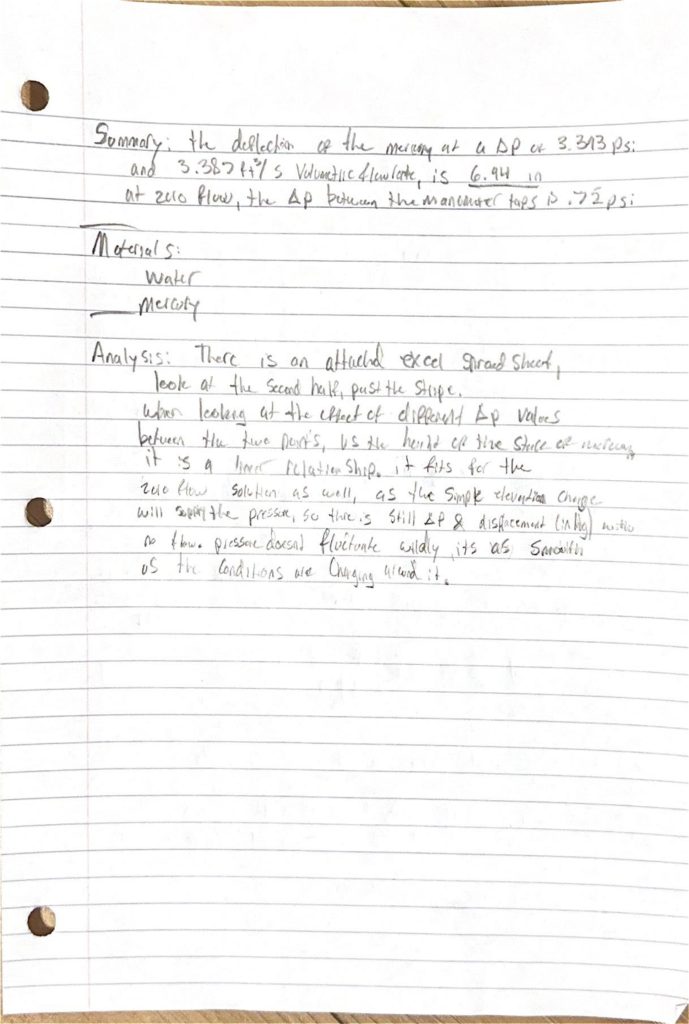 Summary: the deflection of the mercury at a ΔP of 3.393 psi
and 3.387 ft³/s Volumetric flowrate, is 6.94 in
at zero flow, the ΔP between the manometer taps is .72 psi
Materials:
Water
Mercury
Analysis: There is an attached excel spreadsheet,
look at the second half, past the stripe.
when looking at the effect of different ΔP values
between the two ports, vs the height of the of mercury
it is a liner relationship. it fits for the
zero flow solution as well, as the simple elevation change
will supply the pressure, so there is still ΔP & displacement (inHg) with
no flow. pressure doesnt fluctuate wildly, its as smooth
as the conditions are changing around it.